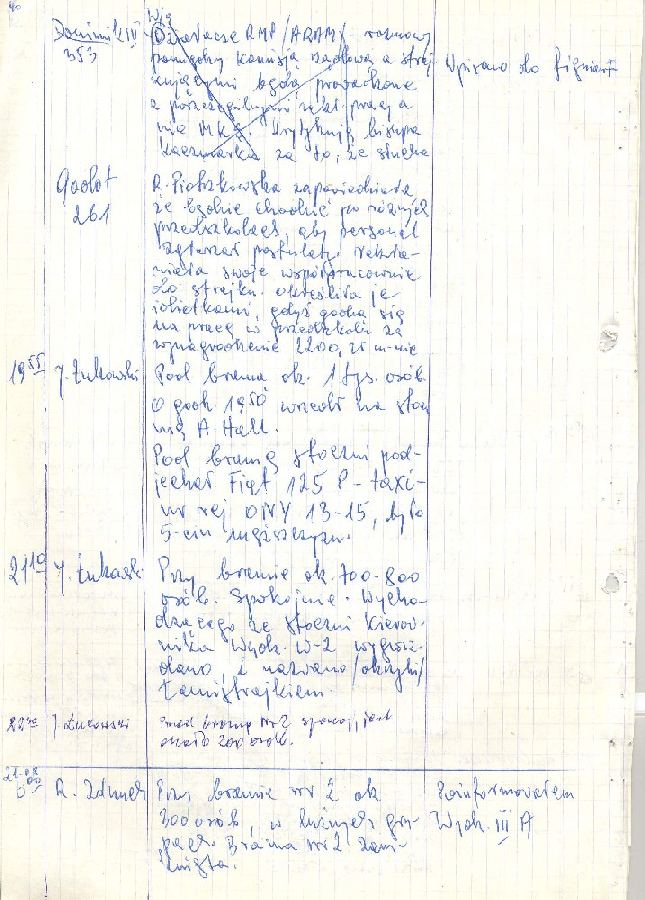 Dominik III
353
Działacze RMP /ARAM/ rozmowy
pomiędzy komisją rządową a straj-
kującymi będą prowadzone
z poszczególnymi zakł. pracy a
nie MKS. Krytykują biskupa
Kaczmarka za to, że słucha
Wpisano do
Godot
261
R. Piotrkowska zapowiedziała
że będzie chodzić po różnych
przedszkolach, aby personel
zgłaszał postulaty.
swoje współpracownice
do strajku. Określiła je
idiotkami, gdyż godzą się
na pracę w przedszkolu za
wynagrodzenie 2200, zł m-nie
19 55
J. Łukowski
Pod bramą ok. 1 tys. osób.
O godz 19 50 wszedł na stocz
nię A. Hall.
Pod bramę stoczni pod-
jechał Fiat 125 P - taxi -
nr rej 13-15, było
5-ciu mężczyzn.
21 10
J. Łukowski
Przy bramie ok. 700-800
osób. Spokojnie. Wycho-
dzącego ze stoczni kierow-
nika Wydz. W-2 wygwiz-
dano i nazwano /okrzyki/
łamistrajkiem.
22
J. Łukowski
Przed bramą nr 2 spokój, jest
około 200 osób.
21.08
R.
Przy bramie nr 2 ok
300 osób, w luźnych gru-
pach. Brama nr 2 zam-
knięta.
Poinformowałem
Wydz. III A